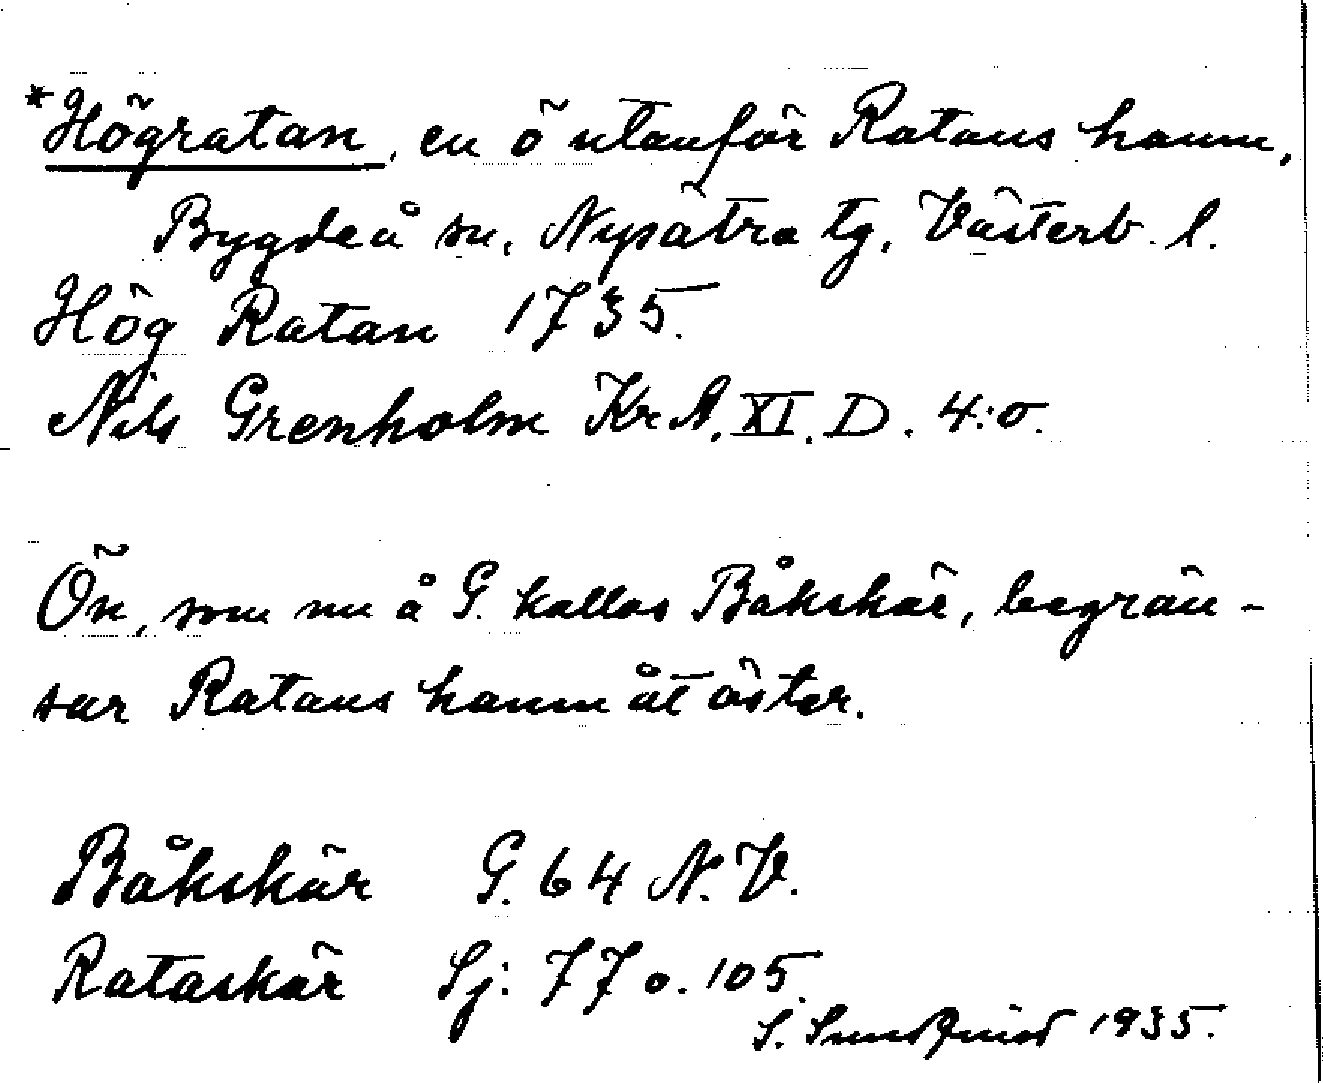 *Högratan, en ö utanför Ratans hamn,
Bygdeå sn, Nysätra tg, Västerb. l.
Hög Ratan 1735.
Nils Grenholm Kr A. XI. D. 4:o.
Ön, som nu å G. kallas Båkskär, begrän-
sar Ratans hamn åt öster.
Båkskär G. 64 N.V.
Rataskär Sj: 77 o. 105
S. Sundquist 1935.